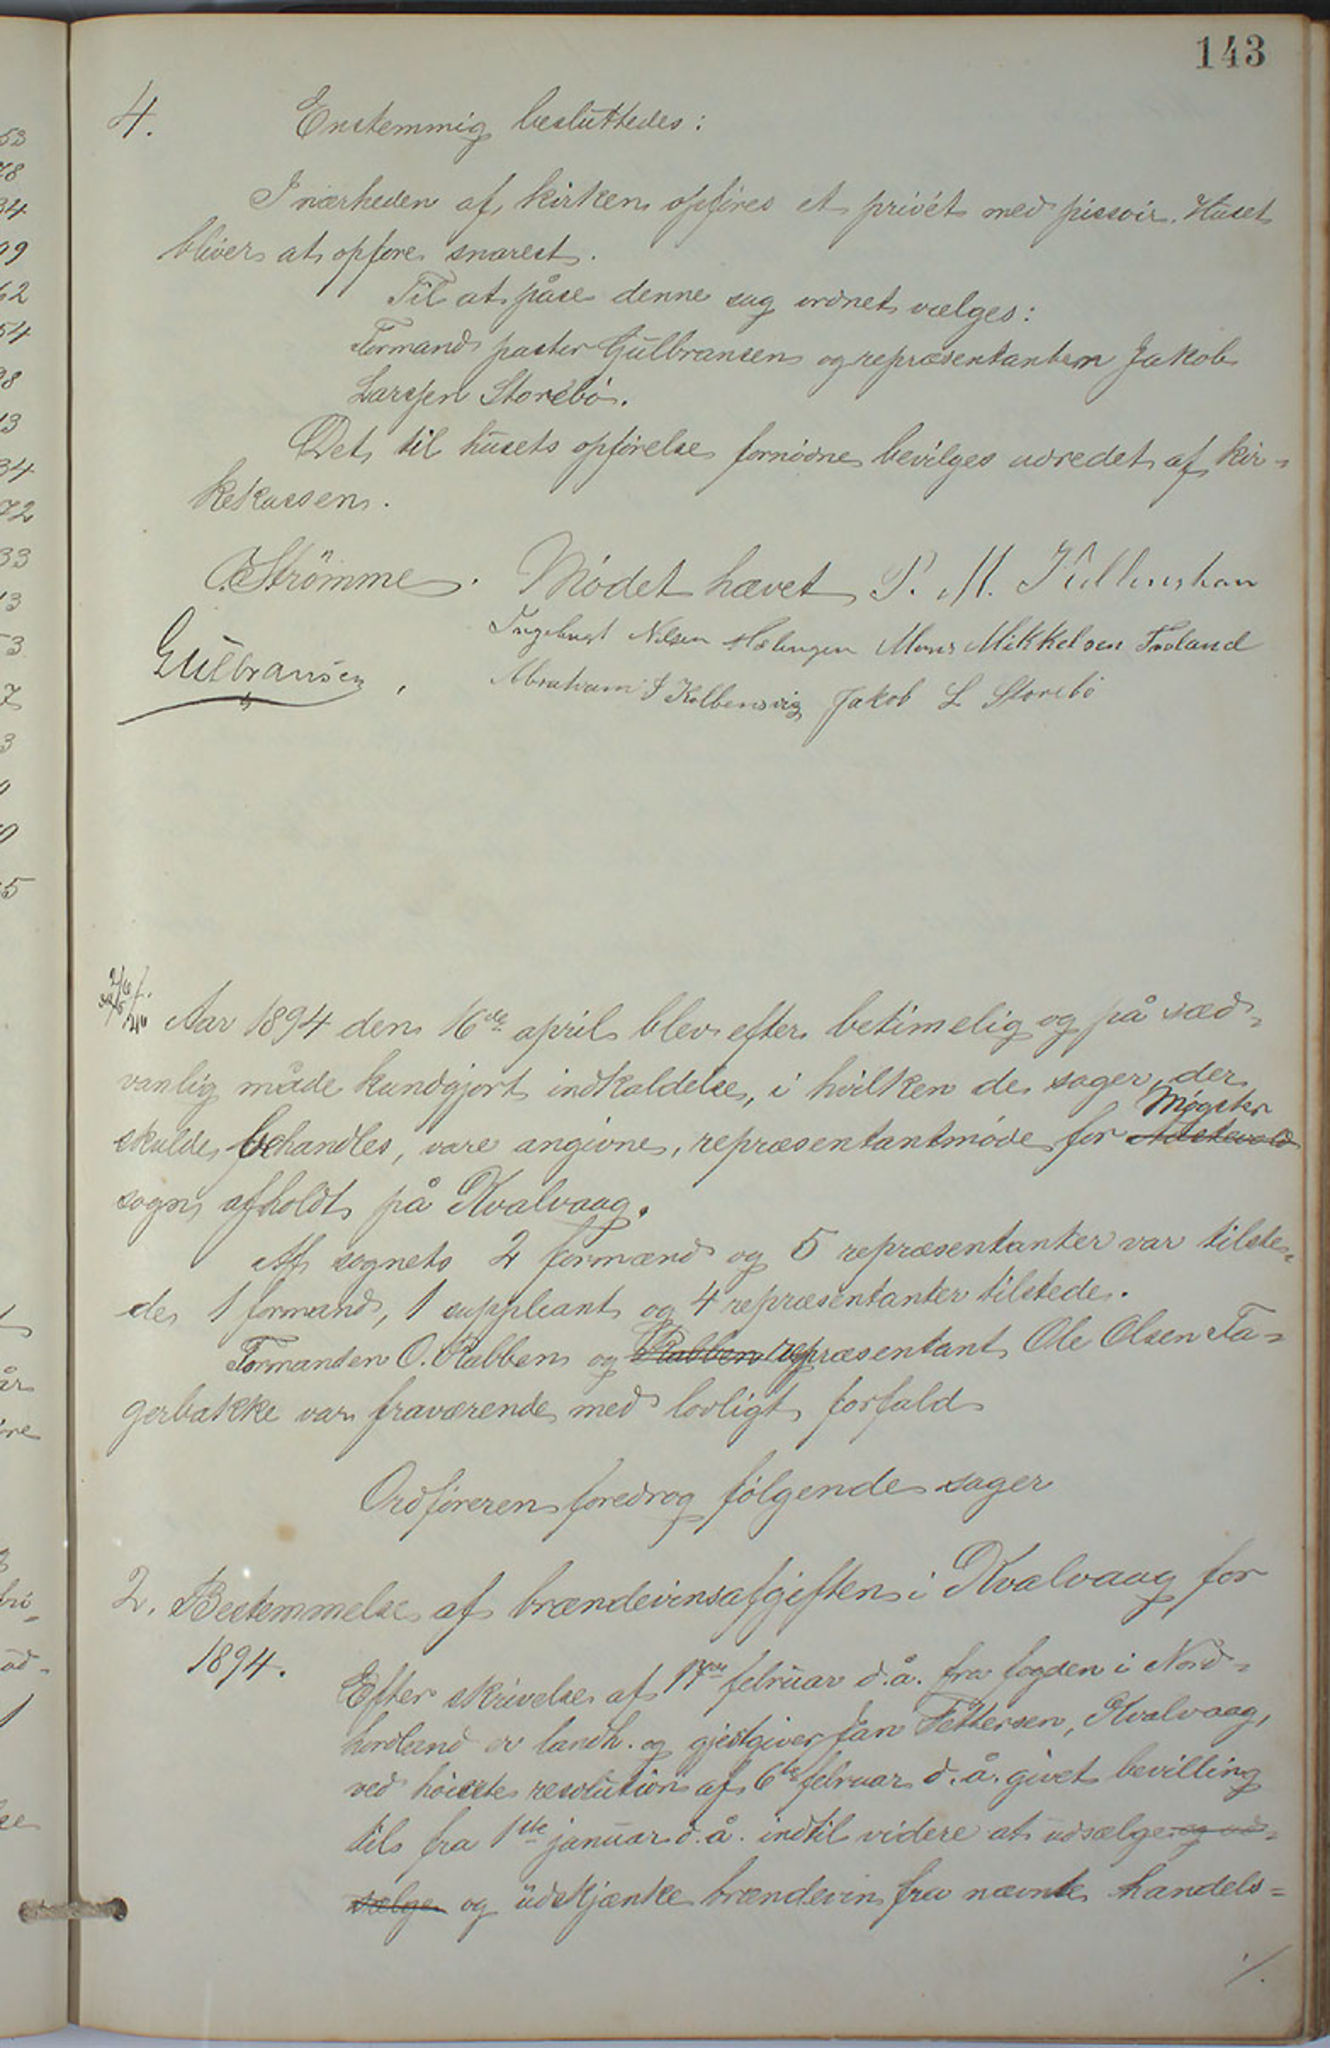 143
4. Enstemmig besluttedes:
I nærheden af kirken opføres et privét med pissoir. Huset
bliver at opføre snarest.
Til at påse denne sag ordnet vælges:
Formand pastor Gülbransen og repræsentanten Jakob
Larssen Storebö.
Det til husets opførelse fornødne bevilges udredet af kir-
kekassen.
O. Strömme. Mødet hævet P. M.
Gülbransen, Ingebrigt Nilsen Møns Mikkelsen Froland
Abraham J Kolbensvig Jakob L Storebö
Aar 1894 den 16de april blev efter betimelig og på sæd-
vanlig måde kundgjort indkaldelse, i hvilken de sager, der
Møgster
skulde behandles, vare angivne, repræsentantmøde for Austevold
sogn afholdt på Kvalvaag.
Af sognets 2 formænd og 5 repræsentanter var tilste-
de 1 formand, 1 suppleant og 4 repræsentanter tilstede.
Formanden O. Rabben og Rabben repræsentant Ole Olsen Fa-
gerbakke var fraværende med lovligt forfald
Ordføreren foredrog følgende sager
2. Bestemmelse af brændevinsafgiften i Kvalvaag for
1894.
Efter skrivelse af februar d.å. fra fogden i Nord-
hordland er landh. og gjestgiver Jan Fettersen, Kvalvaag,
ved høieste resolution af 6te februar d.å. givet bevilling
til fra 1ste januar d.å. indtil videre at udsælge og ud-
sælge og üdskjænke brændevin fra nævnte handels-
./.